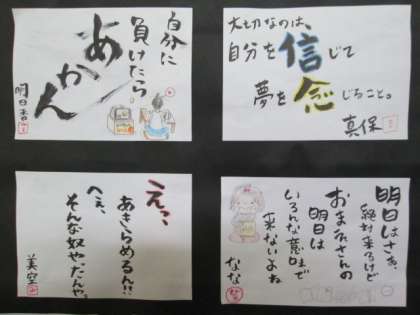 自分に
負けたら。
あかん
明日香
大切なのは、
自分を信じて
夢を念じること。
真保
えっ、
あきらめるん!!
へぇ、
そんな奴やったんや。
美空
明日はさぁ、
絶対来るけど
おまえさんの
明日は
いろんな意味で
来ないよね
なな